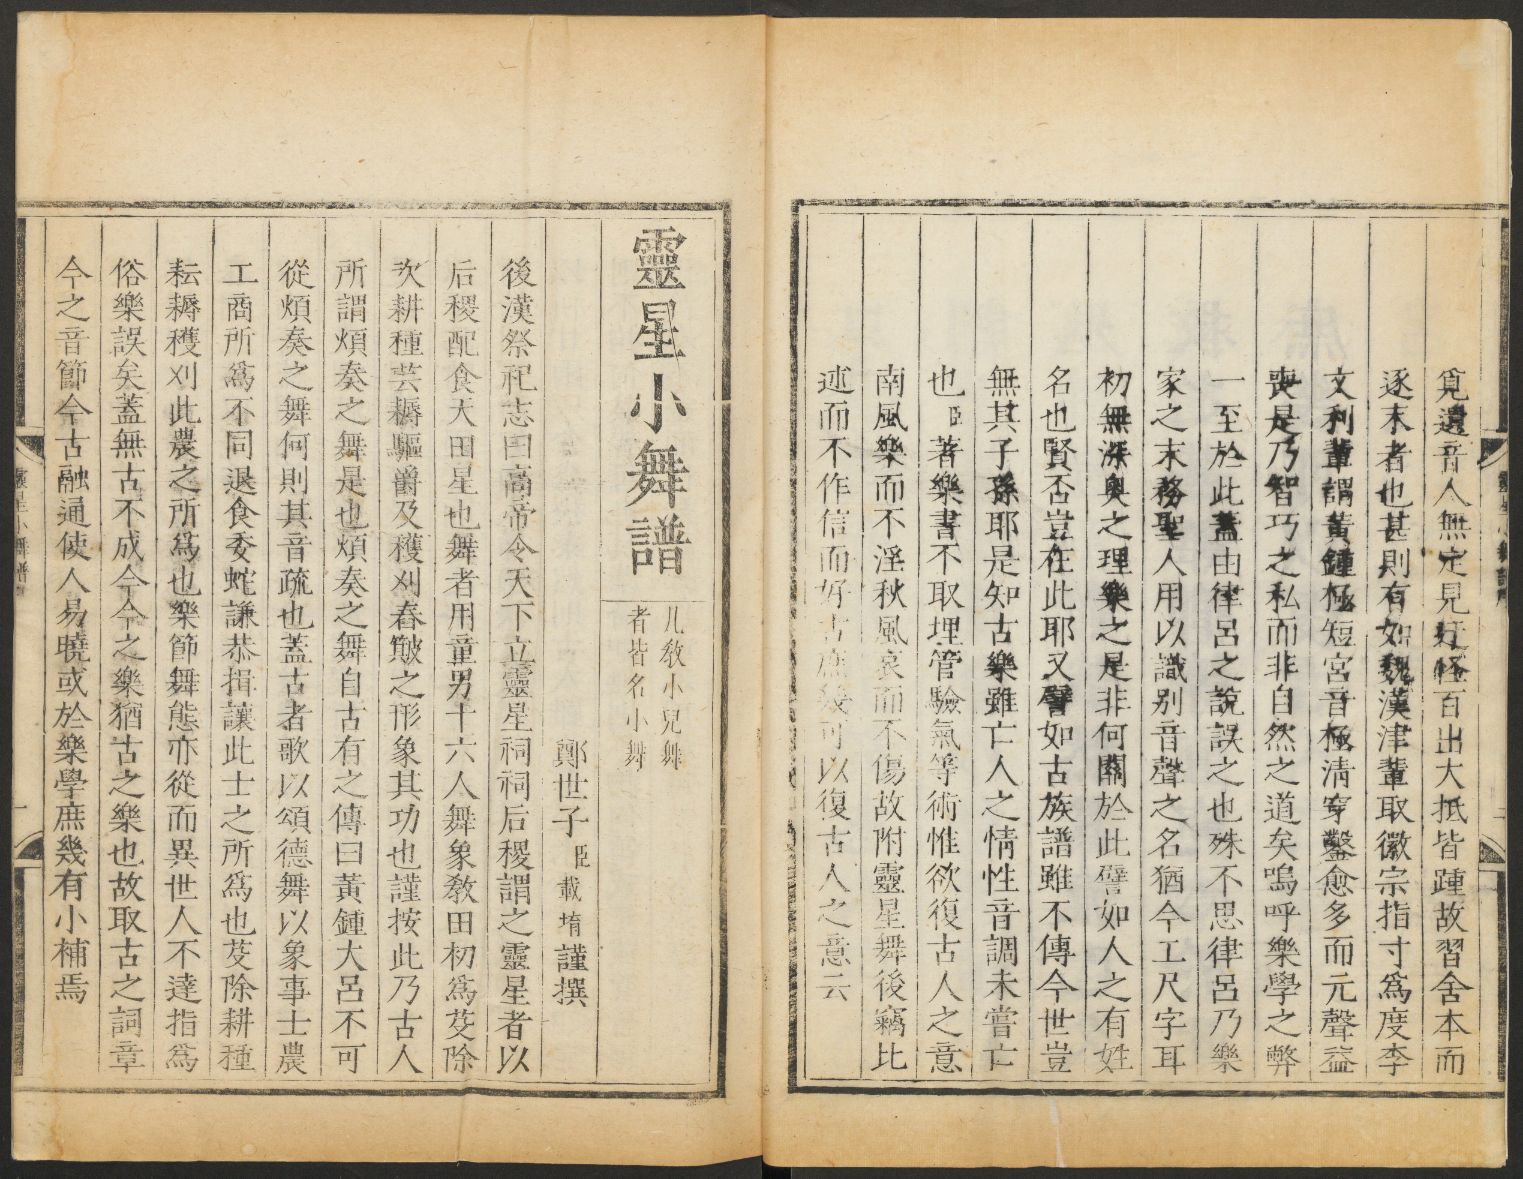 覓遺音人無定見迂怪百出大抵皆踵故習舍本而
逐末者也甚則有如魏漢津輩取徽宗指寸爲度李
文利輩謂黃鍾極短宮音極清穿鑿愈多而元聲益
喪是乃智巧之私而非自然之道矣嗚呼樂學之弊
一至於此蓋由律呂之說誤之也殊不思律呂乃樂
家之末務聖人用以識別音聲之名猶今工尺字耳
初無深奧之理樂之是非何關於此譬如人之有姓
名也賢否豈在此耶又譬如古族譜雖不傳今世豈
無其子孫耶是知古樂雖亡人之情性音調未嘗亡
也臣著樂書不取埋管驗氣等術惟欲復古人之意
南風樂而不淫秋風哀而不傷故附靈星舞後竊比
述而不作信而好古庶幾可以復古人之意云
靈星小舞譜
凡敎小兒舞
者皆名小舞
鄭世子臣載堉謹撰
後漢祭祀志曰高帝令天下立靈星祠祠后稷謂之靈星者以
后稷配食天田星也舞者用童男十六人舞象敎田初爲芟除
次耕種芸耨驅爵及穫刈舂簸之形象其功也謹按此乃古人
所謂煩奏之舞是也煩奏之舞自古有之傳曰黃鍾大呂不可
從煩奏之舞何則其音疏也蓋古者歌以頌德舞以象事士農
工商所爲不同退食委蛇謙恭揖讓此士之所爲也芟除耕種
耘耨穫刈此農之所爲也樂節舞態亦從而異世人不達指爲
俗樂誤矣蓋無古不成今今之樂猶古之樂也故取古之詞章
今之音節今古融通使人易曉或於樂學庶幾有小補焉
靈星小舞譜
一